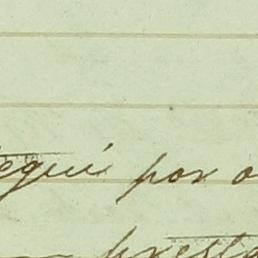 egui por o
presta